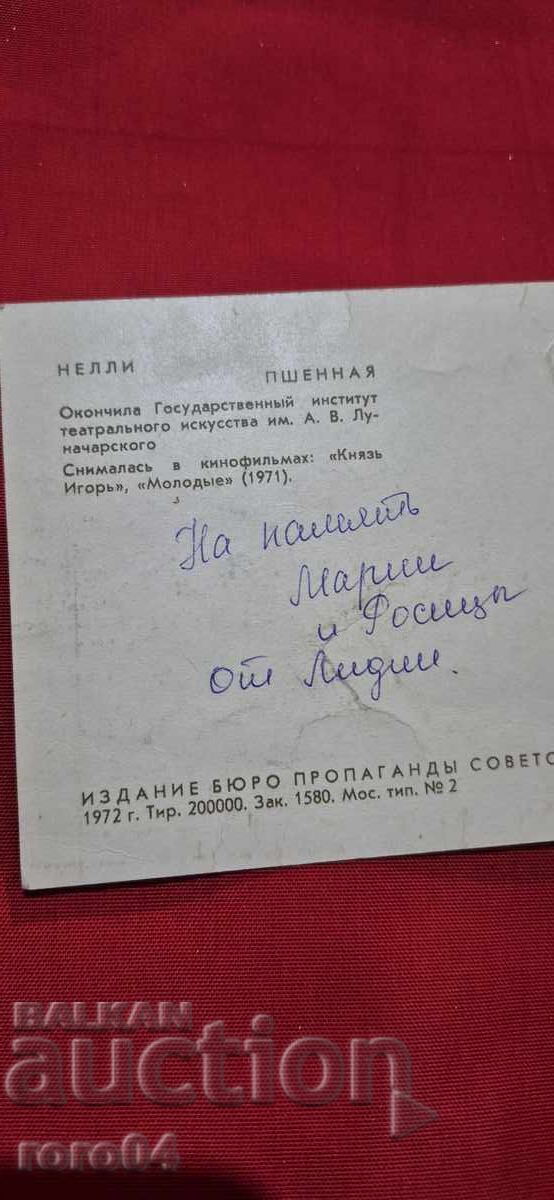 НЕЛЛИ ПШЕННАЯ
Окончила Государственный институт
театрального искусства им. А. В. Лу-
начарского
Снималась в кинофильмах: «Князь
Игорь», «Молодые» (1971).
На память
Марии
и Росицы
от Лидии.
ИЗДАНИЕ БЮРО ПРОПАГАНДЫ СОВЕТС
1972 г. Тир. 200000. Зак. 1580. Мос. тип. № 2
BALKAN
auction
roro04